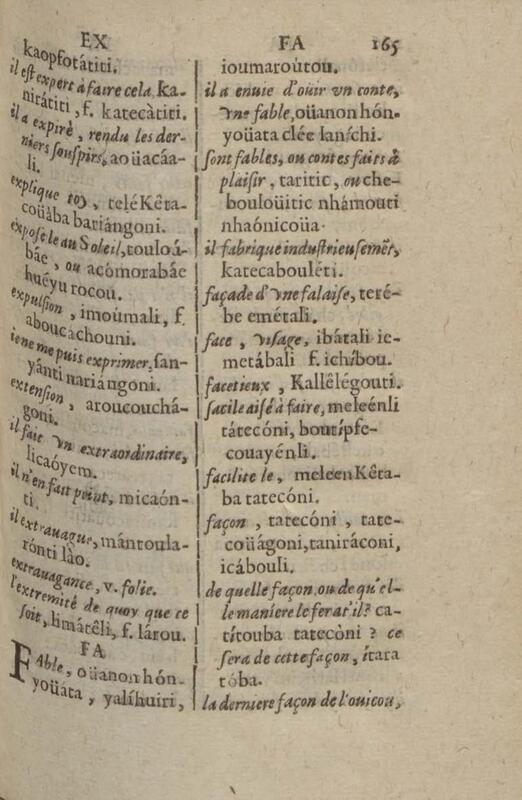 EX
kaopfotátiti.
il eſt expert à faire cela, ka-
nirátiti, f. katecàtiti.
il a expirè, rendu les der-
niers ſouſpirs, aoüacáa-
li.
explique toy, teléKêta-
coüàba bariángoni.
expoſe le au Soleil, touloá-
báe, ou acómorabáe
huéyu rocou.
expulſion, imoúmali, f.
aboucachouni.
ie ne me puis exprimer, ſan-
yánti nariángoni.
extenſion, aroucouchá-
goni.
il fait vn extraordinaire,
licaóyem.
il n'en fait point, micaón-
ti.
il extrauague, mántoula-
rónti lào.
extrauagance, v. folie.
l'extremité de quoy que ce
ſoit, limátêli, f. lárou.
FA
FAble, oüanon hón-
yoüáta, yalíhuiri,
FA 165
ioumaroùtou.
il a enuie d'ouir vn conte,
vne fable, oüanon hón-
yoüata clée lanſchi.
ſont fables, ou contes faits à
plaiſir, taritic, ou che-
bouloüitic nhámouti
nhaónicoüa.
il fabrique induſtrieuſemẽt,
katecabouléti.
façade d'vne falaiſe, teré-
be emétali.
face, viſage, ibátali ie-
metábali f. ichíbou.
facetieux, Kallêlégouti.
facile aiſé à faire, meleénli
tátecóni, boutípfe-
couayénli.
facilite le, meleen Kêta-
ba tatecóni.
façon, tatecóni, tate-
coüágoni, taniráconi,
icábouli.
de quelle façon, ou de qu'el-
le maniere le ferat'il? ca-
títouba tatecòni? ce
ſera de cette façon, ítara
tóba.
la derniere façon de l'ouicou,